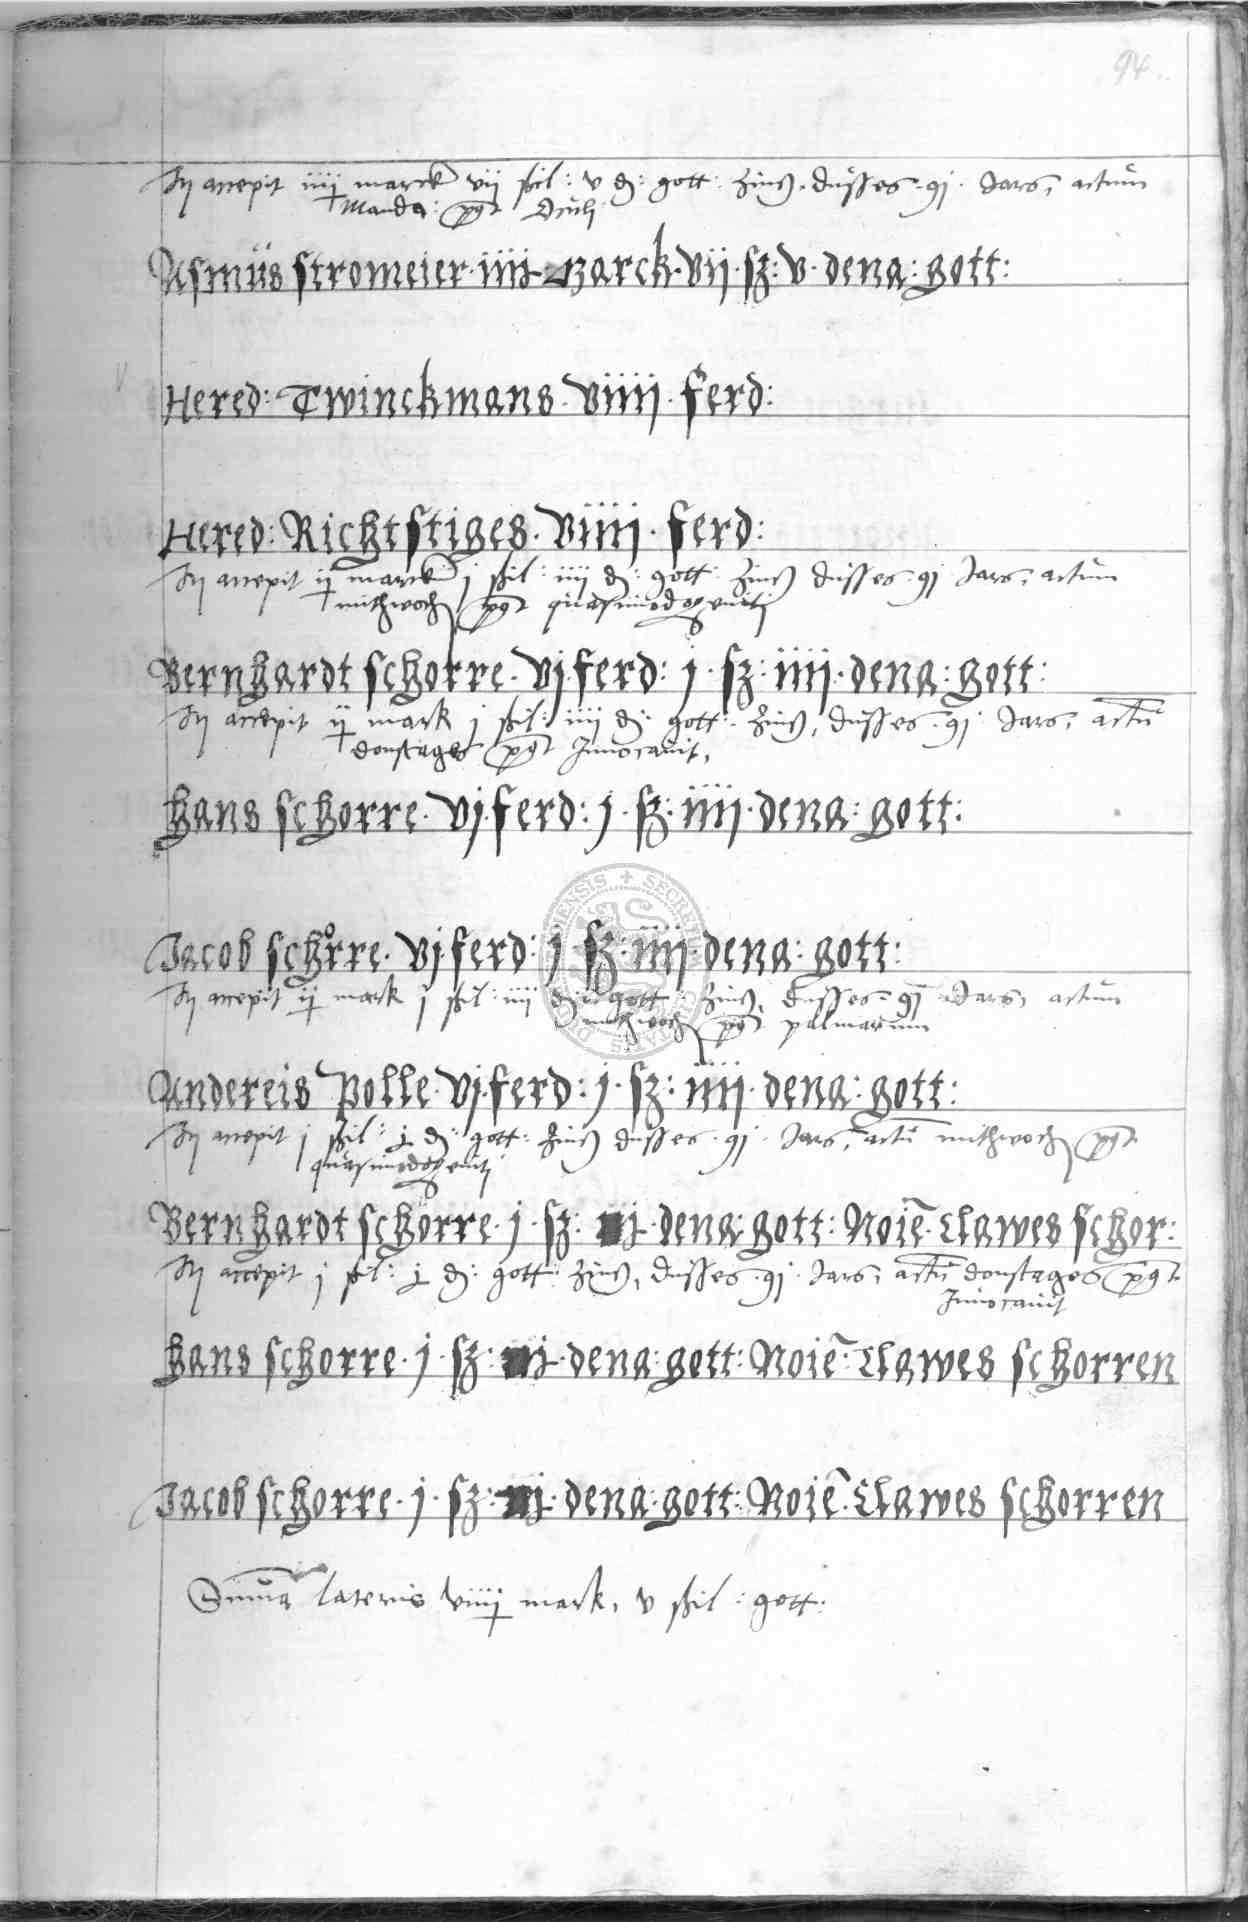 94.
accepit iiij marck vij ßil: v d: gott: Zinß dusses qj Jars, actum
Manda: pqt Oculi
Asmüs stromeier · iiij · Marck · vij · sz: v · dena: gott:
Hered: Twinckmans · viiij · ferd:
Hered: Richtstiges · viiij · ferd:
accepit ij marck j ßil: iiij d: gott: Zinß dusses qj Jars, actum
mithwoch pqt quasimodogeniti
Bernhardt schorre · vj · ferd: j · sz: iiij · dena: gott:
accepit ij mark j ßil: iiij d: gott: Zinß, dusses qj Jars, actu
donstages pqt Invocavit,
hans schorre · vj · ferd: j · sz: iiij · dena: gott:
Jacob schorre · vj · ferd: j · sz: iiij · dena: gott:
accepit ij mark j ßil: iiij d: gott: Zinß, dusses qj Jars, actum
mithwoch pqt palmarum
Andereis Polle · vj · ferd: j · sz: iiij · dena: gott:
accepit j ßil: j d: gott: Zinß dusses qj Jars, actu mithwoch pqt
quasimodogeniti
Bernhardt schorre · j · sz: j · dena: gott: Noiē · Clawes schor:
accepit j ßil: j d: gott: Zinß, dusses qj Jars, actu donstages pqt
Invocavit
hans schorre · j · sz: j · dena: gott: Noiē: Clawes schorren
Jacob schorre · j · sz: j · dena: gott: Noiē · Clawes schorren
Suma lateris viiij mark, v ßil: gott: